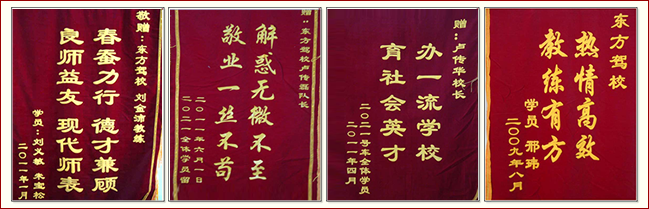 敬赠:东方驾校 刘金沛教练
春蚕力行 德才兼顾
良师益友 现代师表
学员:刘义敏 朱宝松
二〇一一年一月
赠:东方驾校卢传磊队长
解惑无微不至
敬业一丝不苟
二〇一一年六月一日
二〇二一全体学员留
赠:卢传华校长
办一流学校
育社会英才
二〇二一号车全体学员
二〇一一年四月
东方驾校
热情高效
教练有方
学员 邢玮
二〇〇九年八月